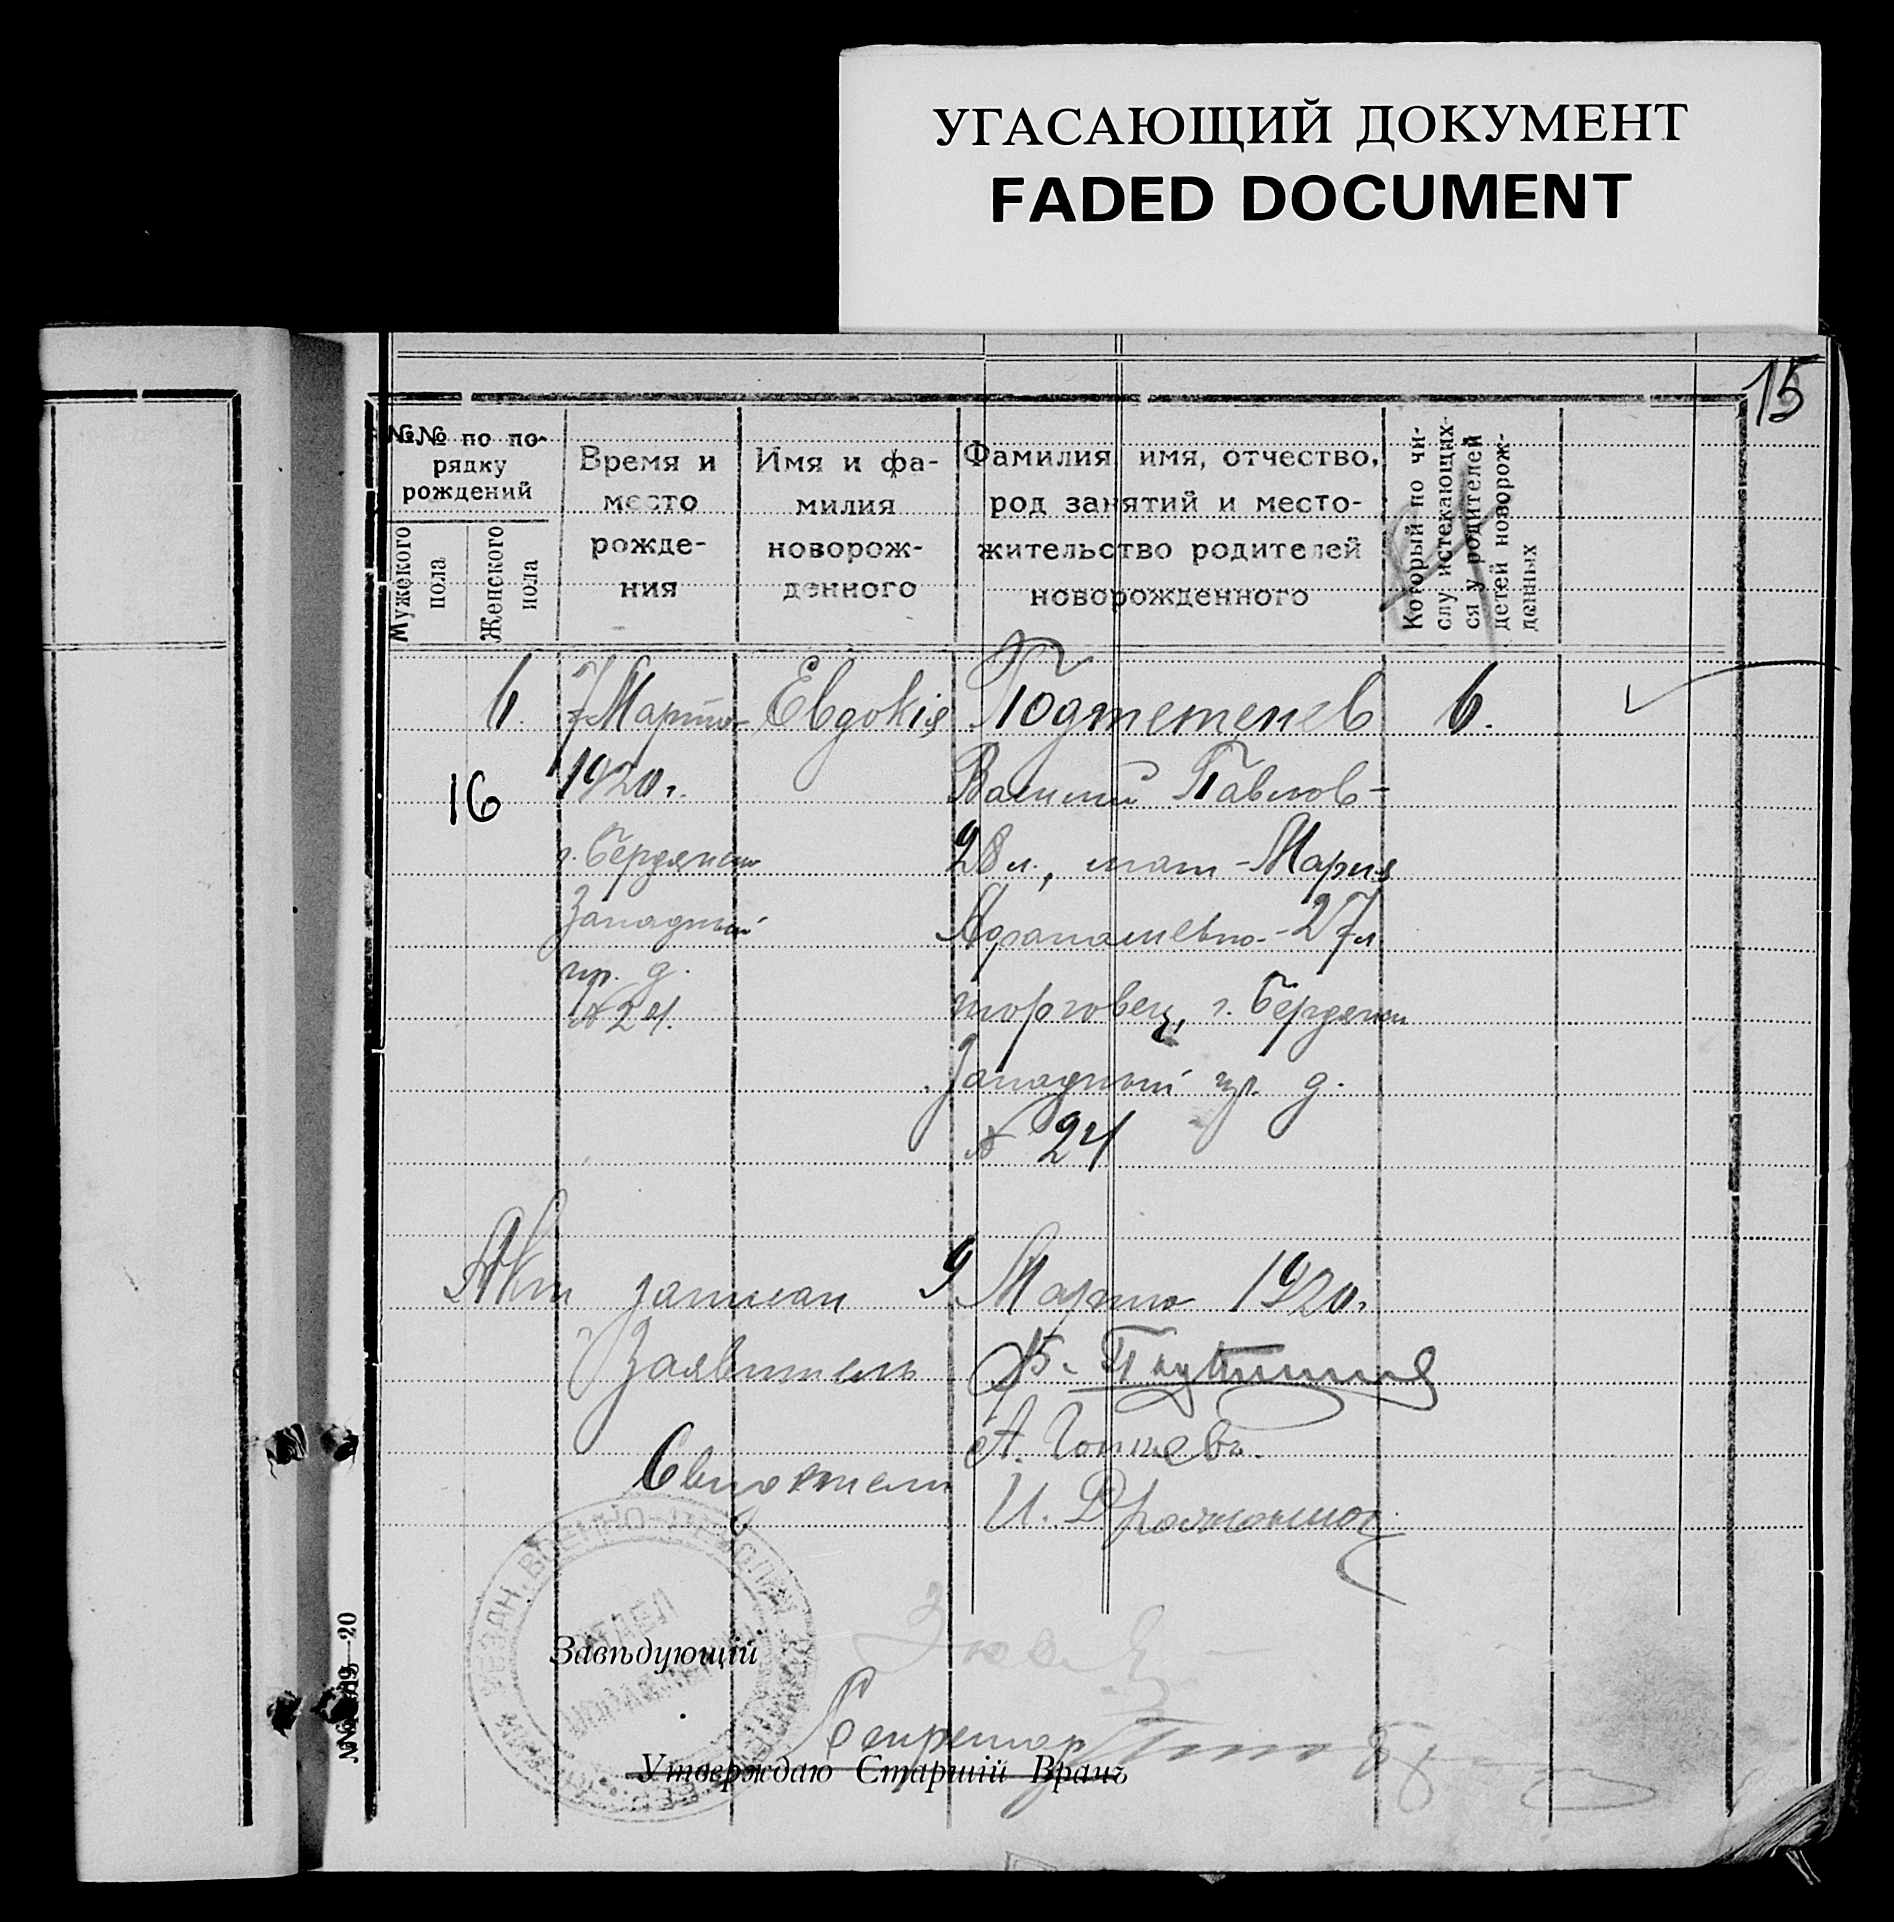 УГАСАЮЩИЙ ДОКУМЕНТ
FADED DOCUMENT
15
№№ по по-
рядку
рождений
Мужеского
пола
Женского
пола
Время и
место
рожде-
ния
Имя и фа-
милия
новорож-
денного
Фамилия имя, отчество,
род занятий и место-
жительство родителей
новорожденного
Который по чи-
слу истекающих-
ся у родителей
детей новорож-
денных
6.
16
7 Марта
1920 г.
г. Бердянск
Западный
пр. д.
№ 24.
Евдокія
Василий Павлов-
28 л., мать - Мария
27 л
торговец, г. Бердянск
Западный пр. д.
№ 24
6.
Акт записан 9 Марта 1920 г.
Заявитель
Свидетели
А.
И.
Завѣдующій
Секретар
Утверждаю Старшій Врачъ